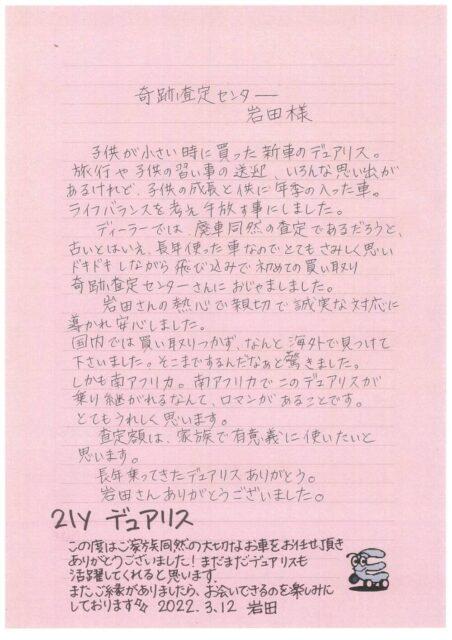 奇跡査定センター
岩田様
子供が小さい時に買った新車のデュアリス。
旅行や子供の習い事の送迎、いろんな思い出が
あるけれど、子供の成長と供に年季の入った車。
ライフバランスを考え手放す事にしました。
ディーラーでは、廃車同然の査定であるだろうと、
古いとはいえ、長年使った車なのでとてもさみしく思い
ドキドキしながら飛び込みで初めての買い取り
奇跡査定センターさんにおじゃましました。
岩田さんの熱心で親切で誠実な対応に
導かれ安心しました。
国内では買い取りつかず、なんと海外で見つけて
下さいました。そこまでするんだなぁと驚きました。
しかも南アフリカ。南アフリカでこのデュアリスが
乗り継がれるなんて、ロマンがあることです。
とてもうれしく思います。
査定額は、家族で有意義に使いたいと
思います。
長年乗ってきたデュアリスありがとう。
岩田さんありがとうございました。
21Y デュアリス
この度はご家族同然の大切なお車をお任せ頂き
ありがとうございました！まだまだデュアリスも
活躍してくれると思います
またご縁がありましたら、お会いできるのを楽しみに
しております 2022.3.12 岩田